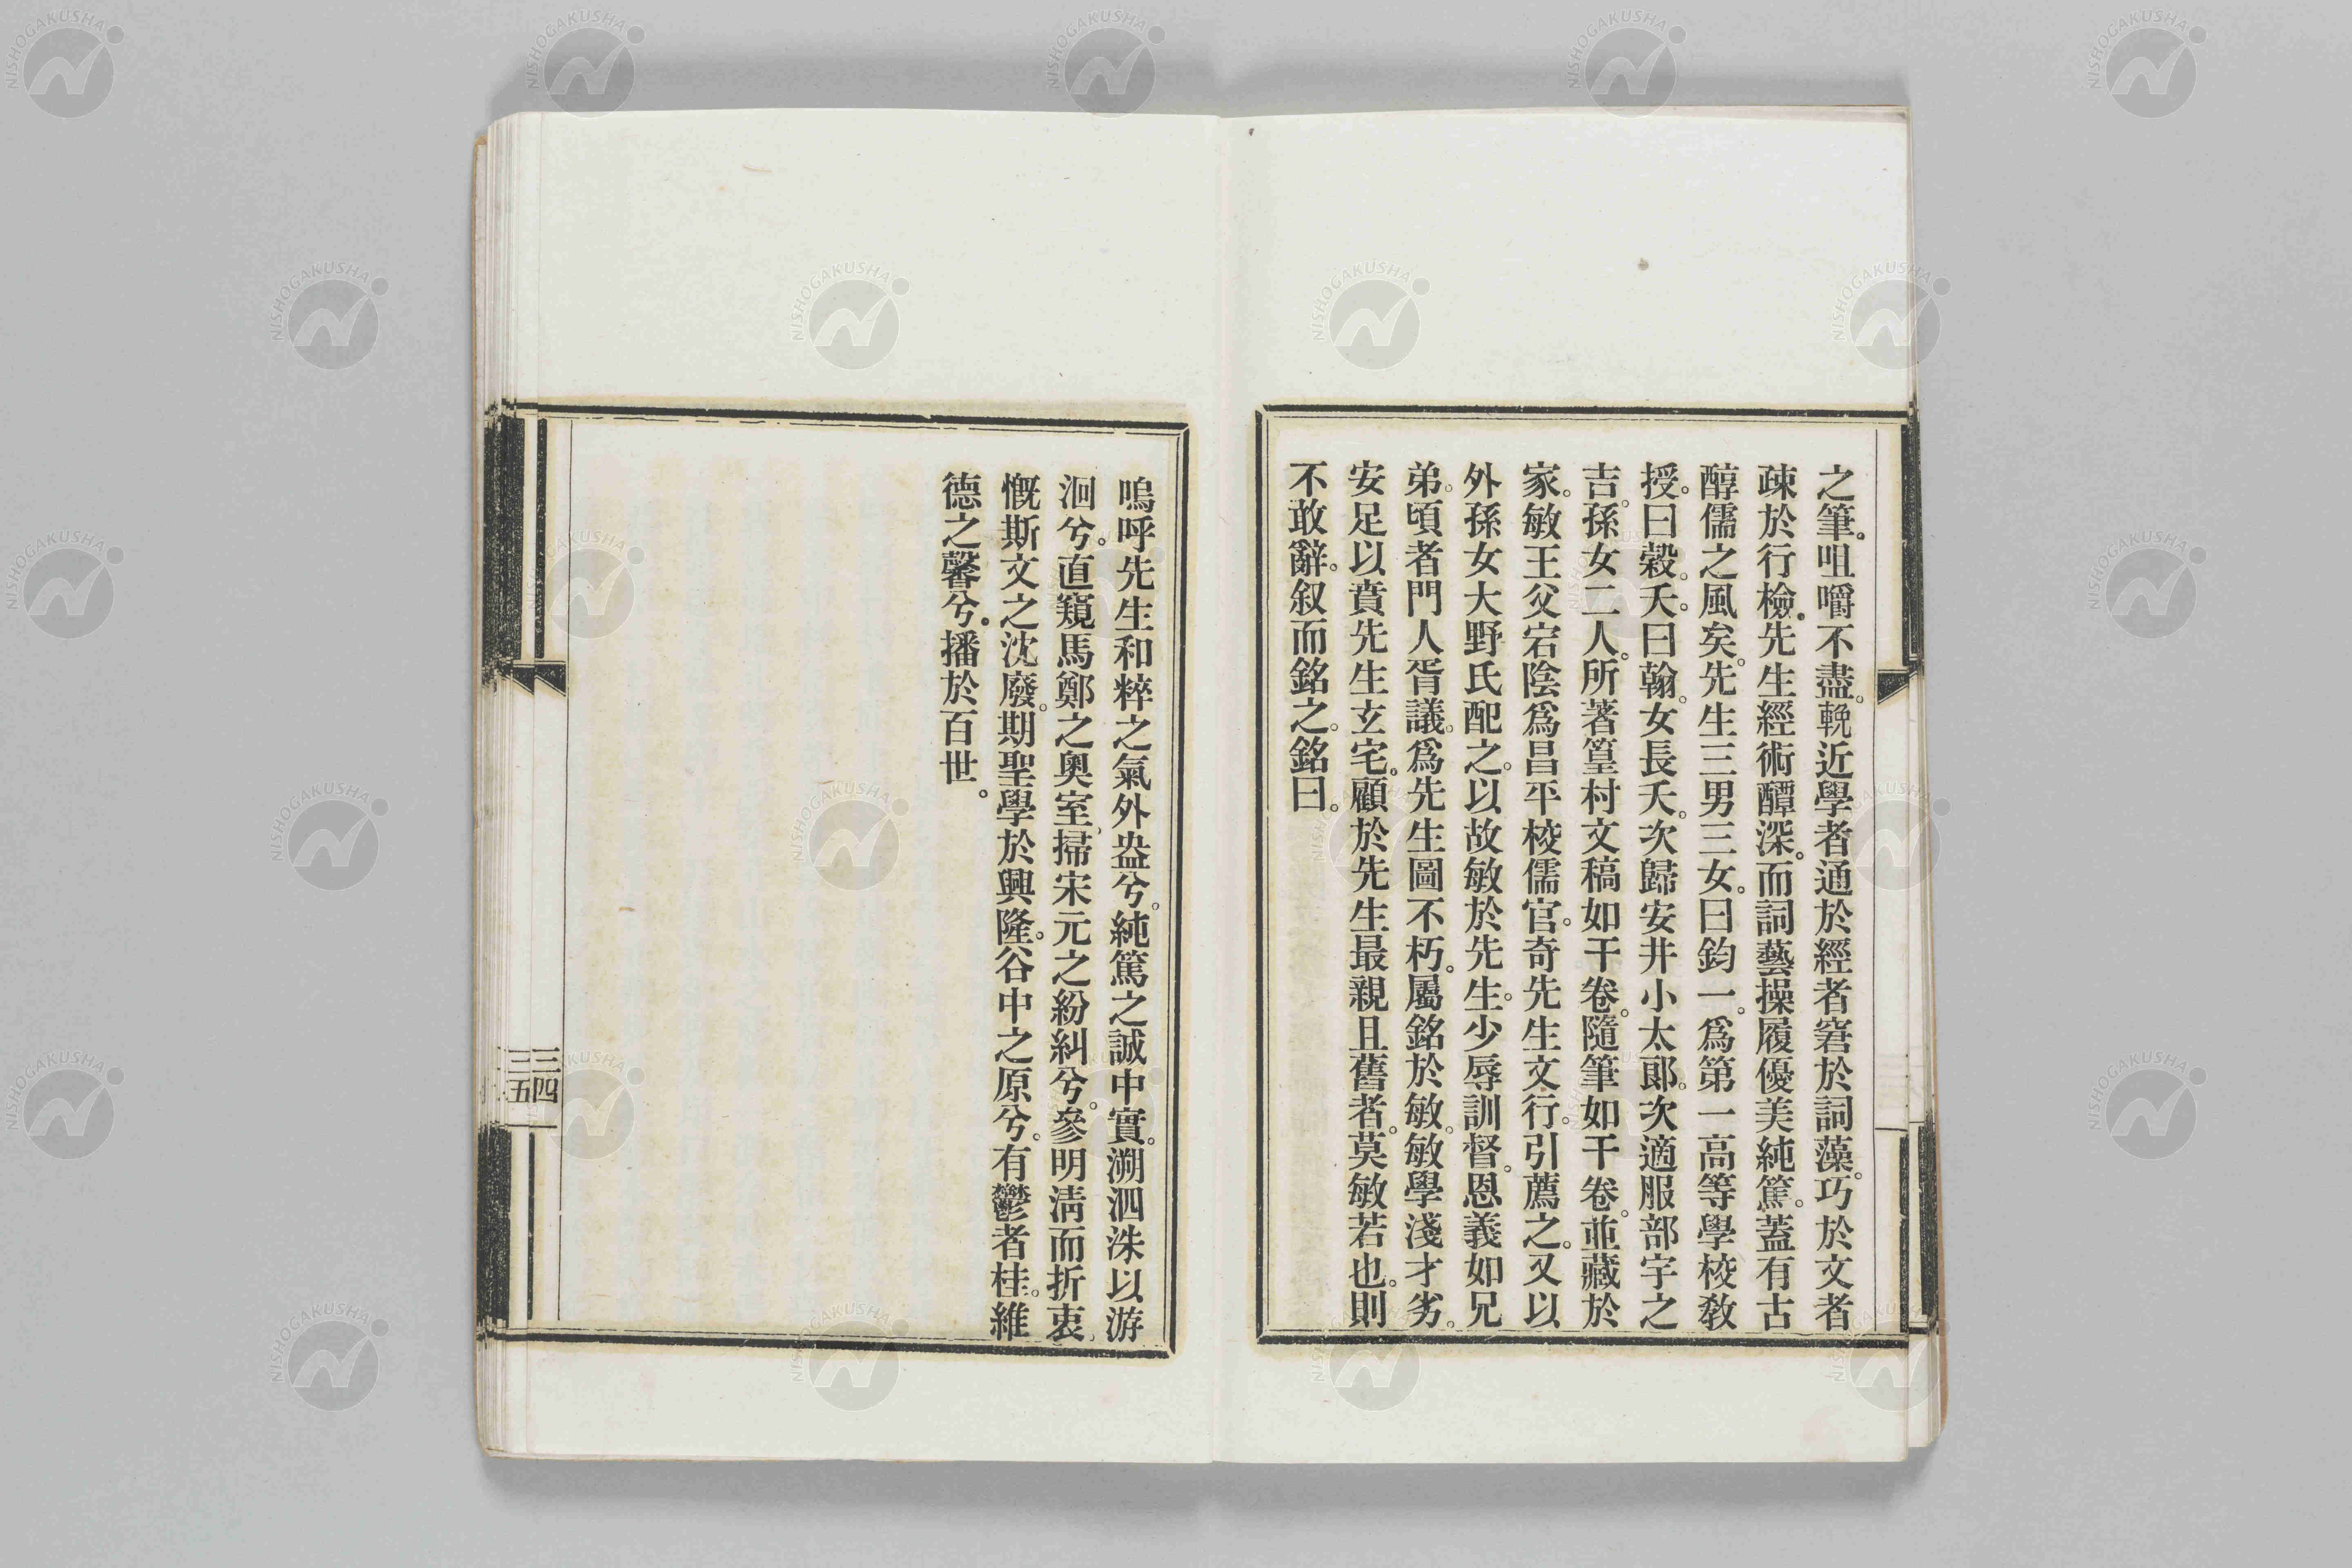 之筆。咀嚼不盡。輓近學者通於經者窘於詞藻。巧於文者
疎於行檢。先生經術醰深。而詞藝操履優美純篤。蓋有古
醇儒之風矣。先生三男三女。曰鈞一。爲第一高等學校教
授。曰穀。夭。曰翰。女長夭。次歸安井小太郎。次適服部宇之
吉。孫女二人。所著篁村文稿如干卷。隨筆如干卷。並藏於
家。敏王父宕陰爲昌平校儒官。奇先生文行。引薦之。又以
外孫女大野氏配之。以故敏於先生。少辱訓督。恩義如兄
弟。頃者門人胥議。爲先生圖不朽。屬銘於敏。敏學淺才劣。
安足以賁先生玄宅。顧於先生最親且舊者。莫敏若也。則
不敢辭。叙而銘之。銘曰。
嗚呼先生和粹之氣外盎兮。純篤之誠中實。溯泗洙以游
洄兮。直窺馬鄭之奧室。掃宋元之紛糾兮。參明淸而折衷。
慨斯文之沈廢。期聖學於興隆。谷中之原兮。有鬱者桂。維
德之馨兮。播於百世。
三四
三五
NISHOGAKUSHA